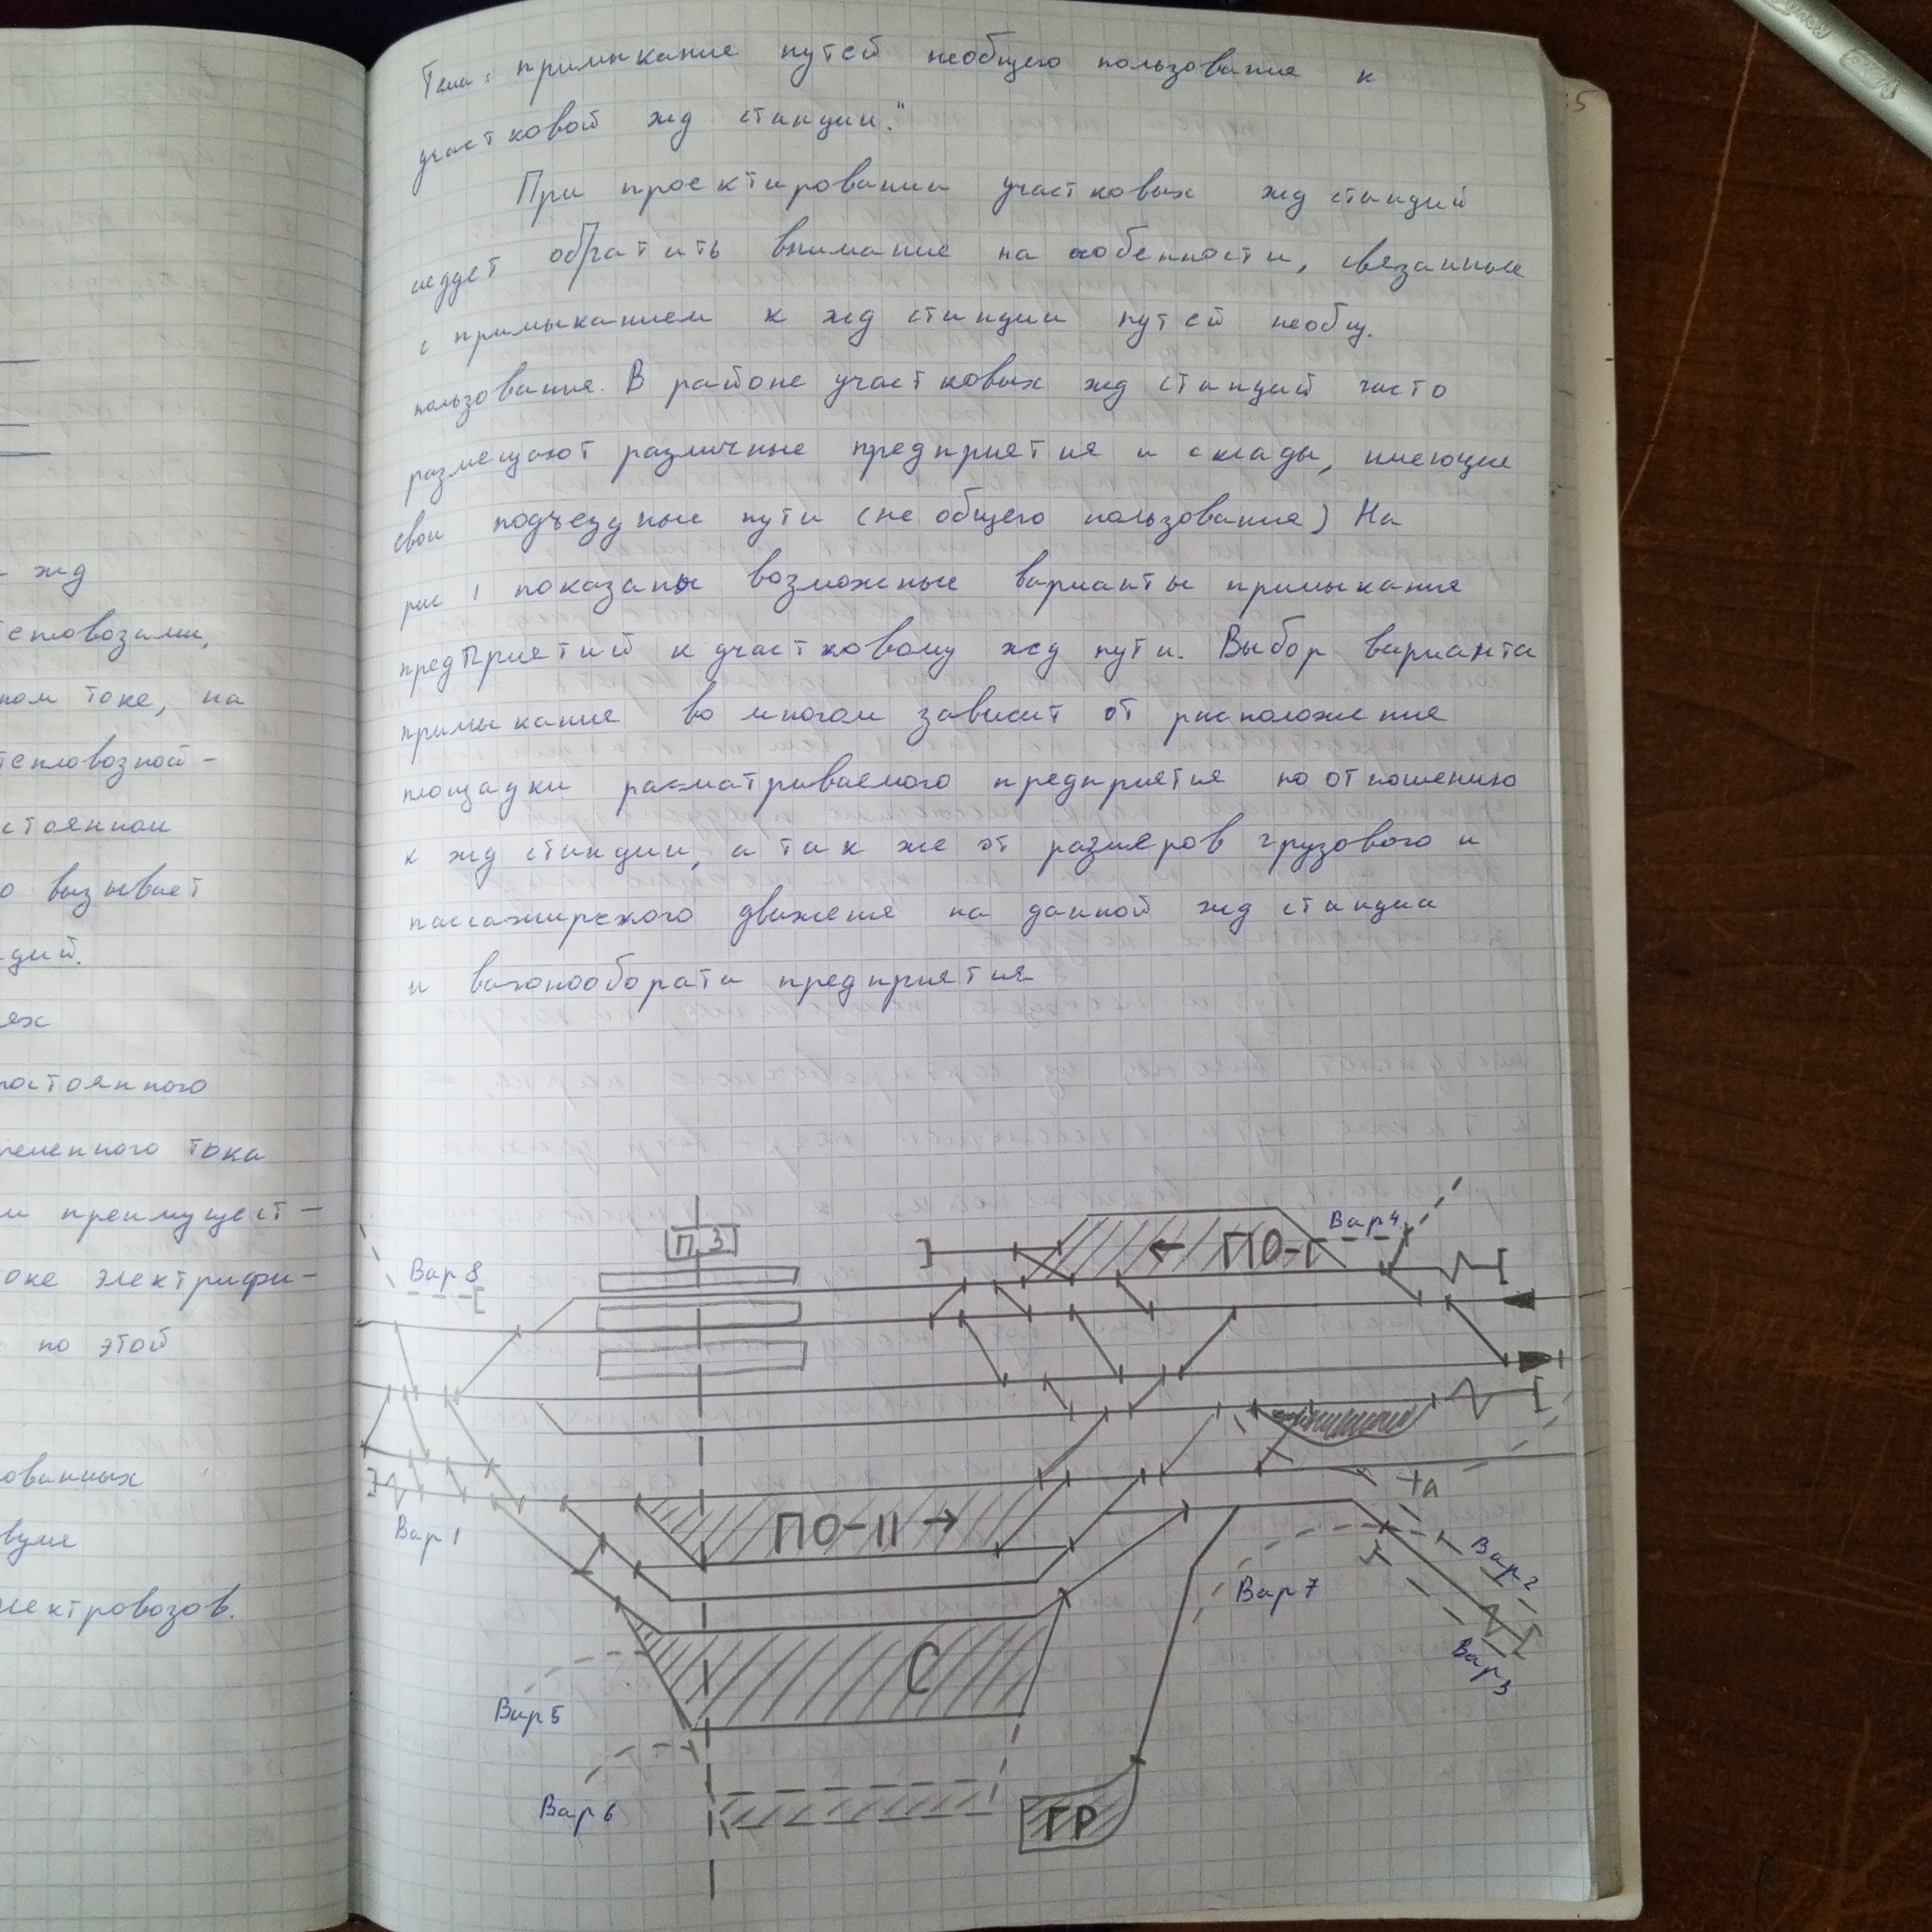 ж/д
тепловозами,
ном токе, на
тепловозной-
стоянном
о вызывает
ций.
ях
постоянного
ременного тока
и преимущест-
оке электрифи-
по этой
ованных
вумя
лектровозов.
Тема: примыкание путей необщего пользования к
участковой жд станции."
При проектировании участковых жд станций
следует обратить внимание на особенности, связанные
с примыканием к жд станции путей необщ.
пользования. В районе участковых жд станций часто
размещают различные предприятия и склады, имеющие
свои подъездные пути (не общего пользования) На
рис 1 показаны возможные варианты примыкания
предприятий к участковому жд пути. Выбор варианта
примыкания во многом зависит от расположения
площадки расматриваемого предприятия по отношению
к жд станции, а так же от размеров грузового и
пассажирского движения на данной жд станции
и вагонооборота предприятия
Вар 4
ПЗ
← ПО-I
Вар 8
ПО-II →
Вар 1
Вар 2
Вар 7
Вар 3
С
Вар 5
Вар 6
ГР